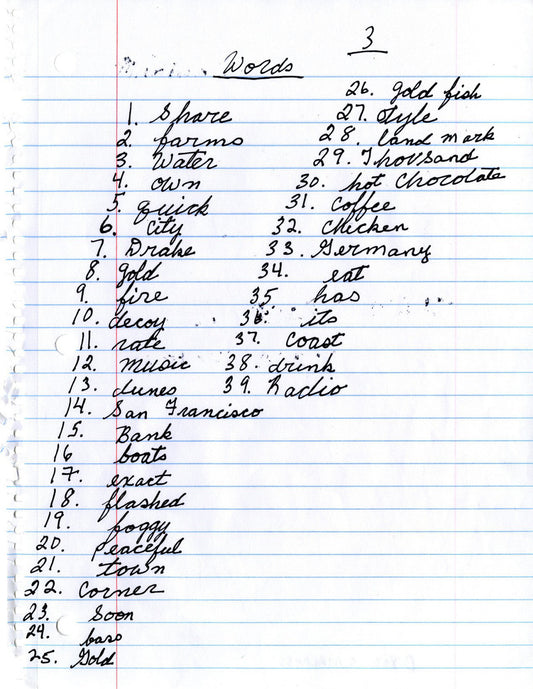 3
Words
1. Share
2. farms
3. Water
4. own
5. quick
6. city
7. Drake
8. gold
9. fire
10. decoy
11. rate
12. music
13. dunes
14. San Francisco
15. Bank
16 boats
17. exact
18. flashed
19. foggy
20. Peaceful
21. town
22. Corner
23. Soon
24. bars
25. Gold
26. gold fish
27. Style
28. land mark
29. Thousand
30. hot Chocolate
31. Coffee
32. Chicken
33. Germany
34. eat
35. has
36. its
37. Coast
38. drink
39. Radio